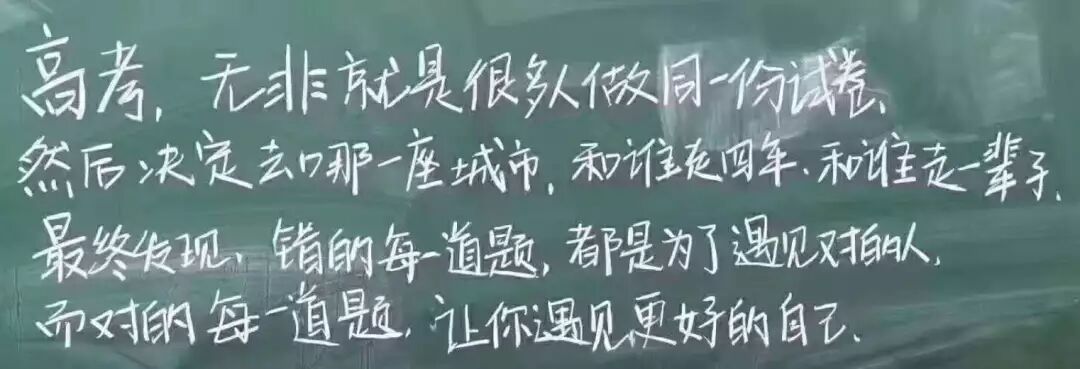 高考,无非就是很多人做同一份试卷、
然后决定去哪一座城市,和谁走四年、和谁走一辈子,
最终发现、错的每一道题,都是为了遇见对的人,
而对的每一道题,让你遇见更好的自己.